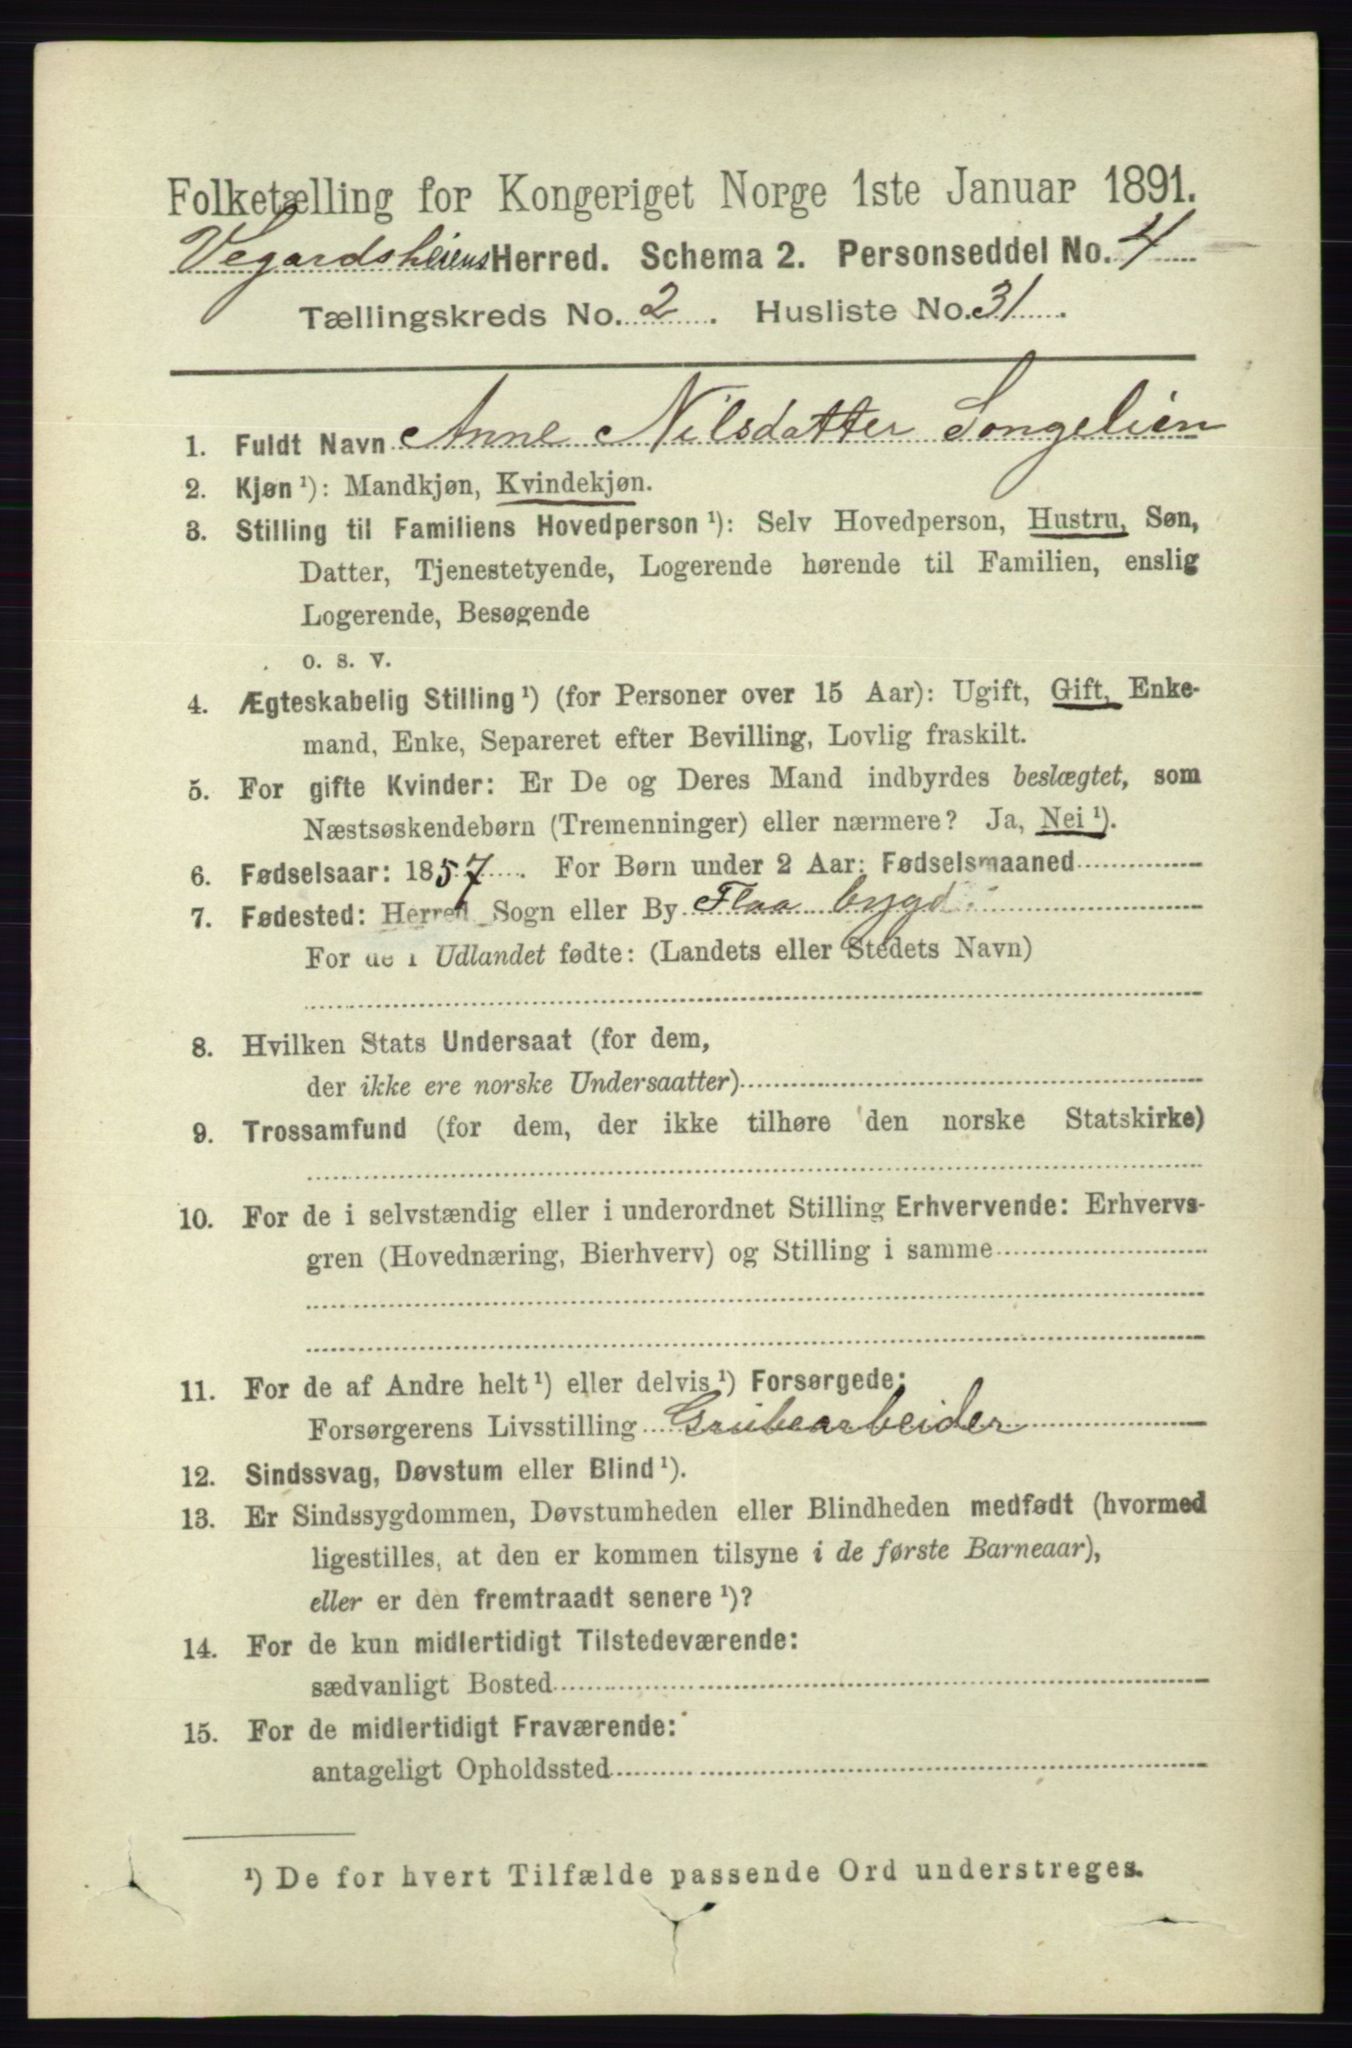 Folketælling for Kongeriget Norge 1ste Januar 1891.
Vegardsheiens Herred. Schema 2. Personseddel No. 4
Tællingskreds No. 2. Husliste No. 31.
1. Fuldt Navn Anne Nilsdatter Songelien
2. Kjøn ¹): Mandkjøn, Kvindekjøn.
3. Stilling til Familiens Hovedperson ¹): Selv Hovedperson, Hustru, Søn,
Datter, Tjenestetyende, Logerende hørende til Familien, enslig
Logerende, Besøgende
o. s. v.
4. Ægteskabelig Stilling ¹) (for Personer over 15 Aar): Ugift, Gift, Enke-
mand, Enke, Separeret efter Bevilling, Lovlig fraskilt.
5. For gifte Kvinder: Er De og Deres Mand indbyrdes beslægtet, som
Næstsøskendebørn (Tremenninger) eller nærmere? Ja, Nei ¹).
6. Fødselsaar: 1857. For Børn under 2 Aar: Fødselsmaaned
7. Fødested: Herred, Sogn eller By Flaa bygd
For de i Udlandet fødte: (Landets eller Stedets Navn)
8. Hvilken Stats Undersaat (for dem,
der ikke ere norske Undersaatter)
9. Trossamfund (for dem, der ikke tilhøre den norske Statskirke)
10. For de i selvstændig eller i underordnet Stilling Erhvervende: Erhvervs-
gren (Hovednæring, Bierhverv) og Stilling i samme
11. For de af Andre helt ¹) eller delvis ¹) Forsørgede:
Forsørgerens Livsstilling Grubearbeider
12. Sindssvag, Døvstum eller Blind ¹).
13. Er Sindssygdommen, Døvstumheden eller Blindheden medfødt (hvormed
ligestilles, at den er kommen tilsyne i de første Barneaar),
eller er den fremtraadt senere ¹)?
14. For de kun midlertidigt Tilstedeværende:
sædvanligt Bosted
15. For de midlertidigt Fraværende:
antageligt Opholdssted
¹) De for hvert Tilfælde passende Ord understreges.